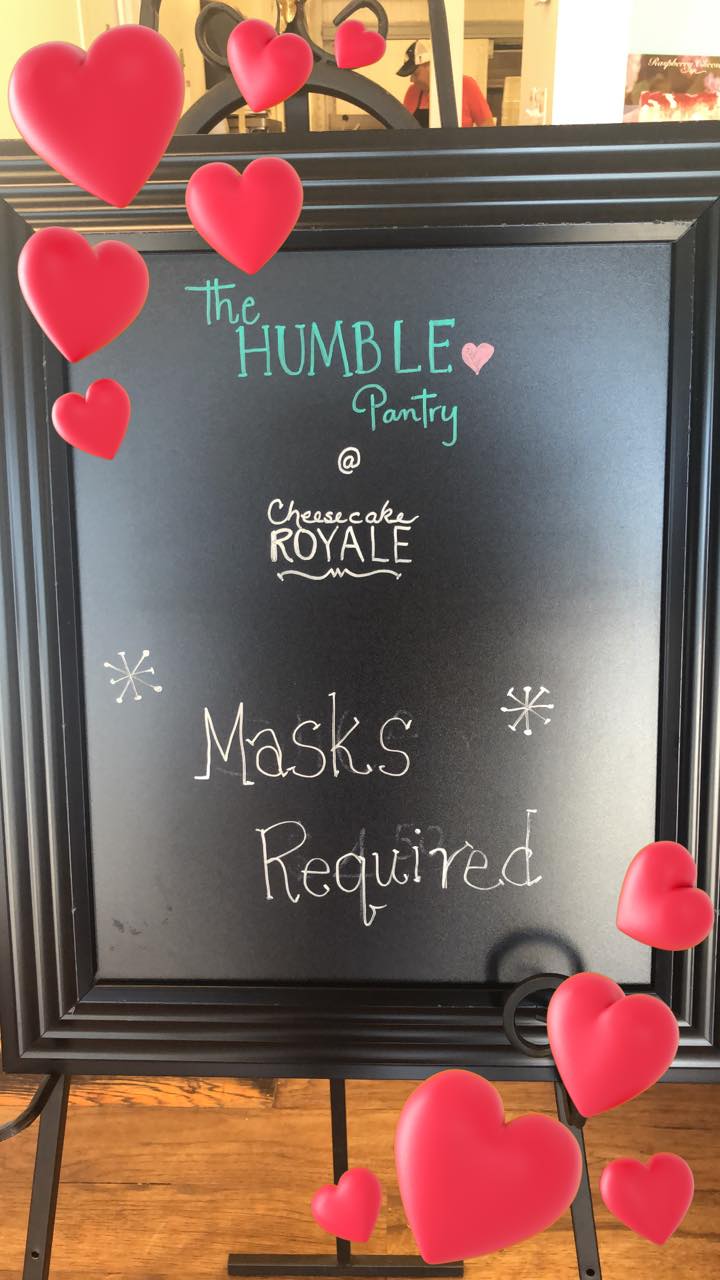 Raspberry
The
HUMBLE
Pantry
@
Cheesecake
ROYALE
Masks
Required